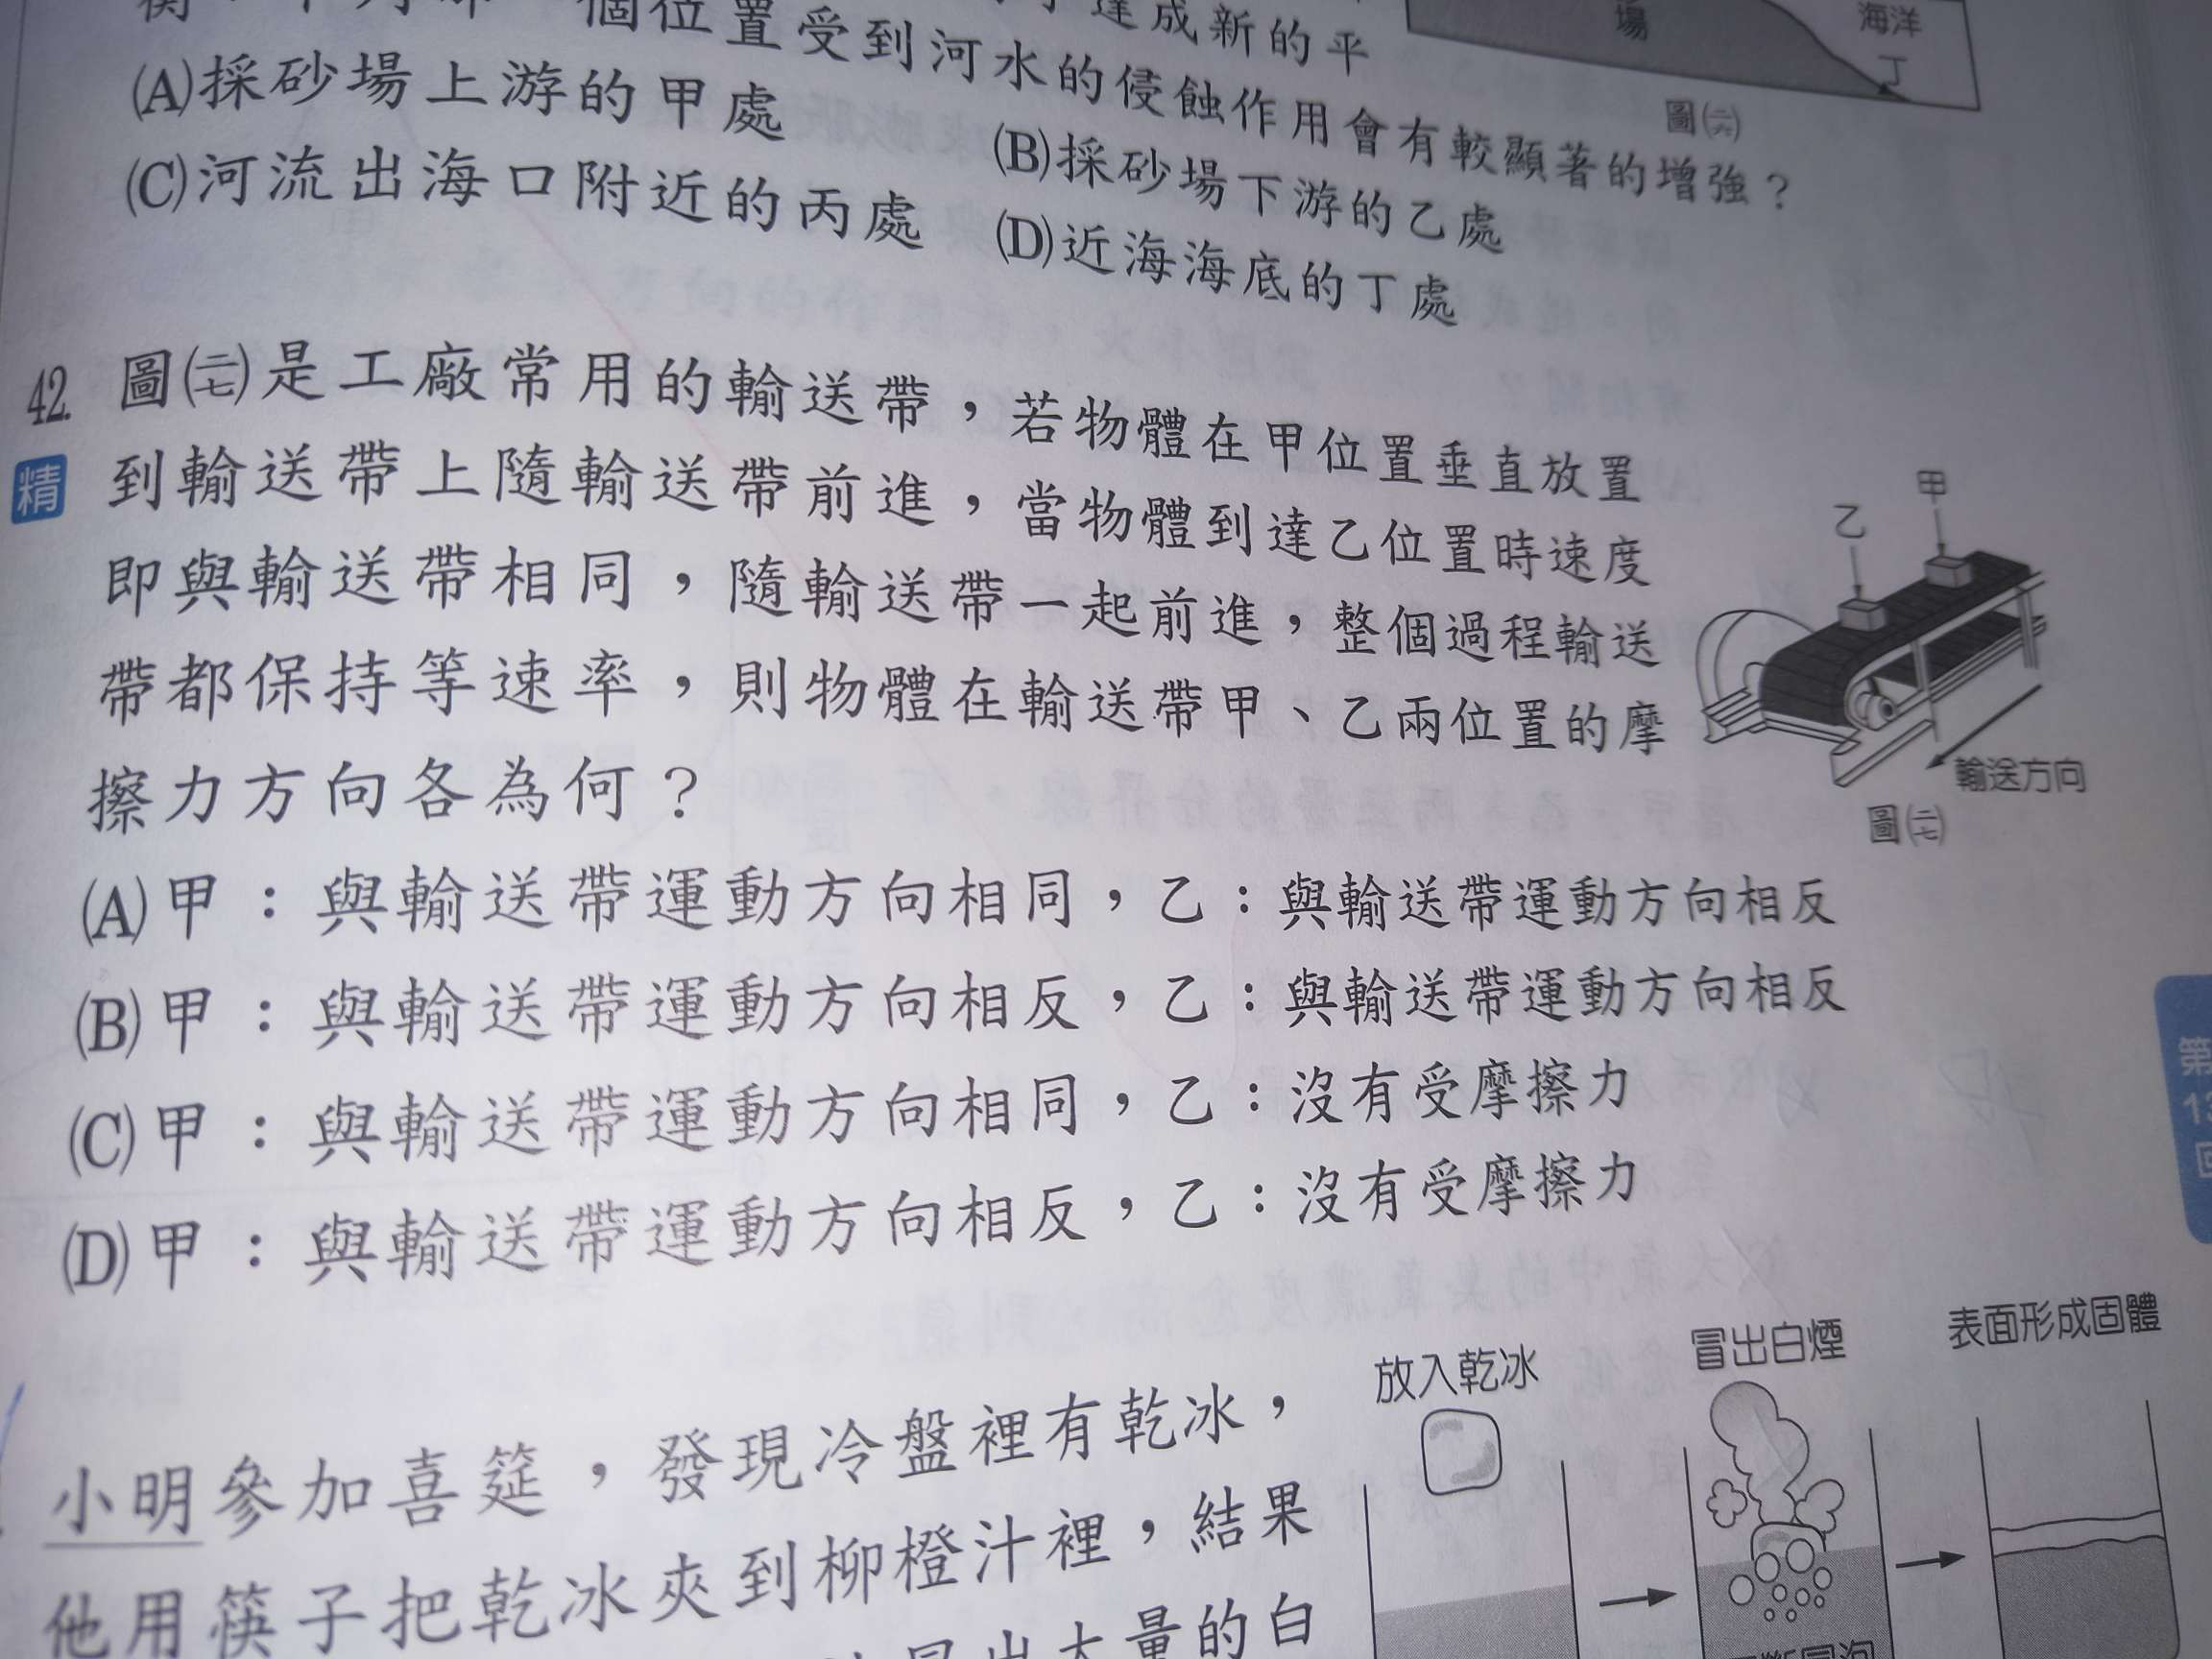 個位置受到河水的侵蝕作用會有較顯著的增強？
達成新的平
(A)採砂場上游的甲處
(B)採砂場下游的乙處
(C)河流出海口附近的丙處
(D)近海海底的丁處
場
海洋
丁
圖(二六)
42. 圖(二七)是工廠常用的輸送帶，若物體在甲位置垂直放置
精 到輸送帶上隨輸送帶前進，當物體到達乙位置時速度
即與輸送帶相同，隨輸送帶一起前進，整個過程輸送
帶都保持等速率，則物體在輸送帶甲、乙兩位置的摩
擦力方向各為何？
甲
乙
輸送方向
圖(二七)
(A)甲：與輸送帶運動方向相同，乙：與輸送帶運動方向相反
(B)甲：與輸送帶運動方向相反，乙：與輸送帶運動方向相反
(C)甲：與輸送帶運動方向相同，乙：沒有受摩擦力
(D)甲：與輸送帶運動方向相反，乙：沒有受摩擦力
第
13
小明參加喜筵，發現冷盤裡有乾冰，
他用筷子把乾冰夾到柳橙汁裡，結果
冒出大量的白
放入乾冰
冒出白煙
表面形成固體